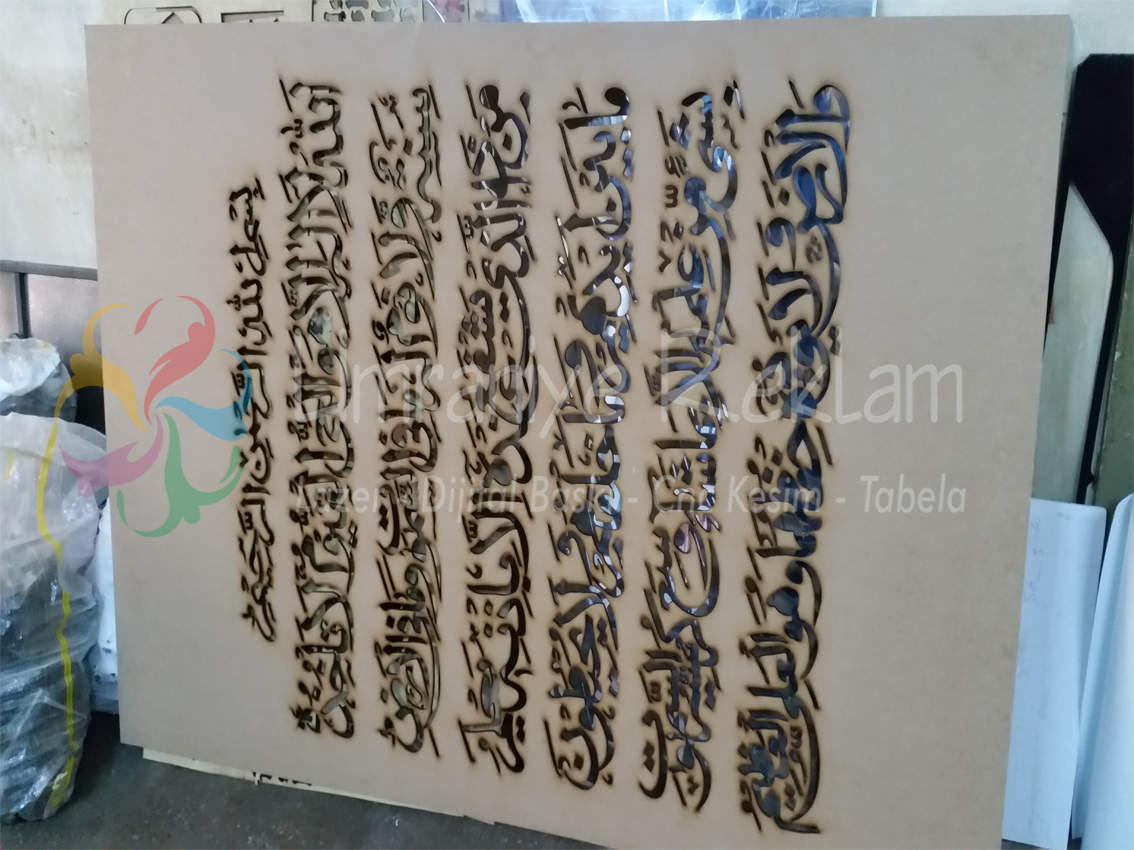 بسم الله الرحمن الرحيم
الله لا اله الا هو الحي القيوم لا تاخذه
سنة ولا نوم له ما في السموات وما في الارض
من ذا الذي يشفع عنده الا باذنه يعلم
ما بين ايديهم وما خلفهم ولا يحيطون
بشيء من علمه الا بما شاء وسع كرسيه السموات
والارض ولا يؤده حفظهما وهو العلي العظيم
Ümraniye Reklam
Lazer - Dijital Baskı - Cnc Kesim - Tabela